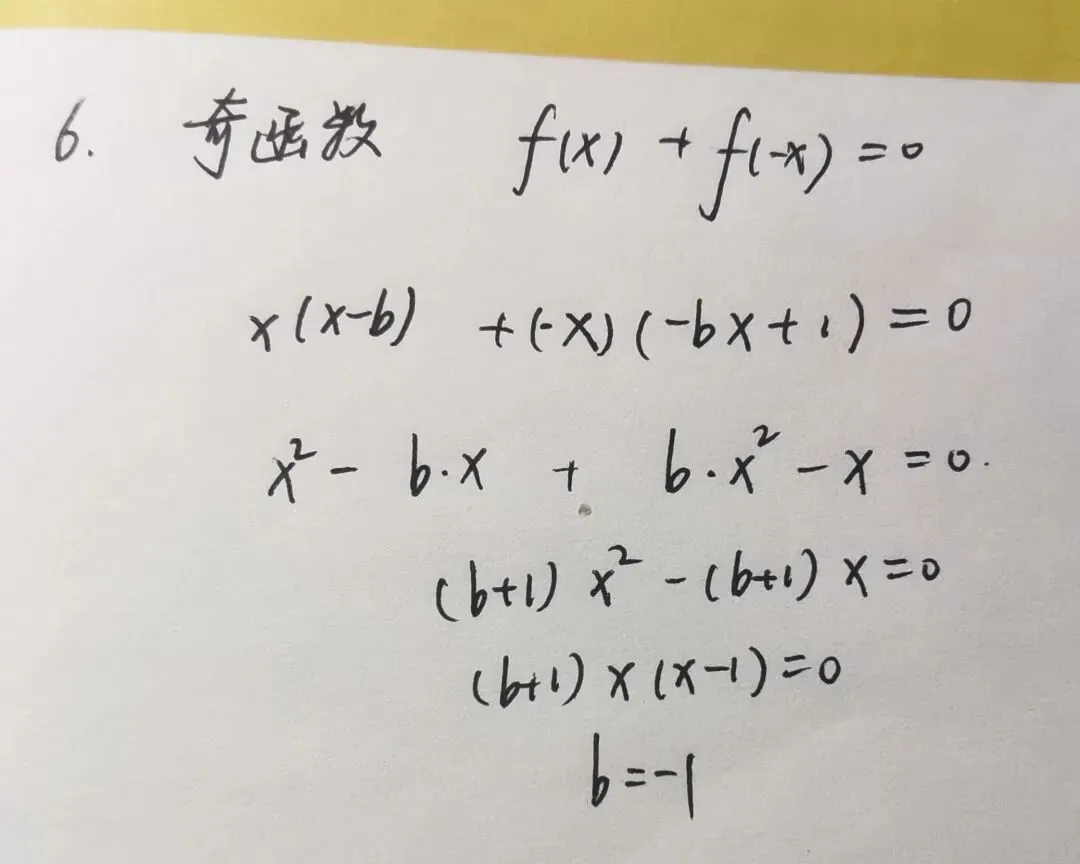 6. 奇函数 f(x) + f(-x) = 0
x(x-b) + (-x)(-bx+1) = 0
x² - b·x + b·x² - x = 0.
(b+1) x² - (b+1) x = 0
(b+1) x (x-1) = 0
b = -1